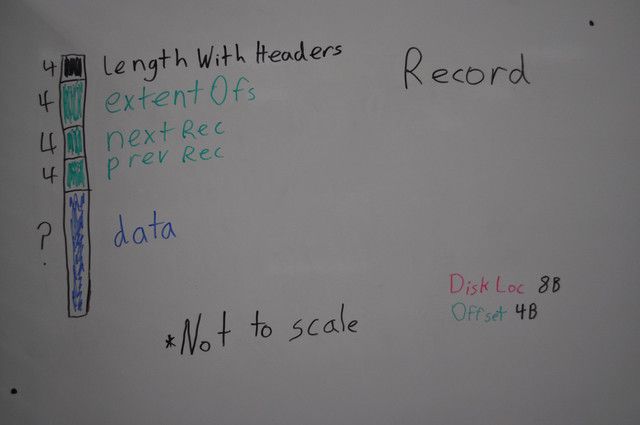 Record
4 Length With Headers
4 extentOfs
4 nextRec
4 prevRec
? data
DiskLoc 8B
Offset 4B
*Not to scale